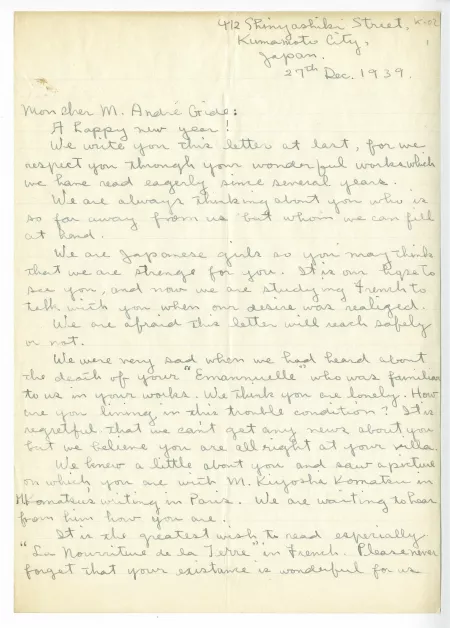 412 Shinyashiki Street, K-02
Kumamoto City, 1
Japan.
27th Dec. 1939.
Mon cher M. André Gide:
A happy new year!
We write you this letter at last, for we
respect you through your wonderful works which
we have read eagerly since several years.
We are always thinking about you who is
so far away from us but whom we can fill
at hand.
We are Japanese girls so you may think
that we are strenge for you. It is our hope to
see you, and now we are studying French to
talk with you when our desire was realized.
We are afraid this letter will reach safely
or not.
We were very sad when we had heard about
the death of your "Emannuelle" who was familiar
to us in your works. We think you are lonely. How
are you lining in this trouble condition? It is
regretful that we can't get any news about you
but we believe you are all right at your villa.
We knew a little about you and saw a picture
on which you are with M. Kiyoshi Komatsu in
M. Komatsu's writing in Paris. We are waiting to hear
from him how you are.
It is the greatest wish to read especially
"La Nourriture de la Terre" in French. Please never
forget that your existance is wonderful for us